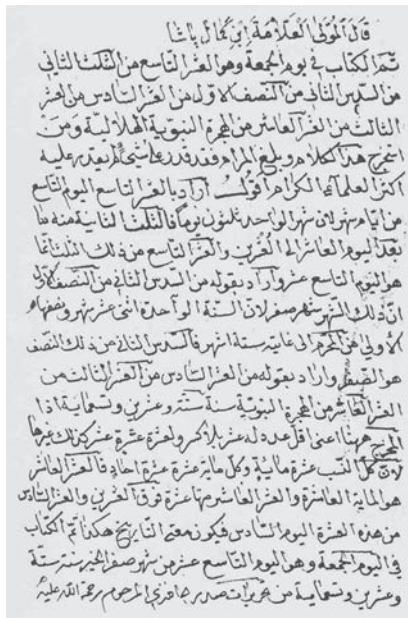 قال المولى العلامة ابن كمال باشا
تم الكتاب في يوم الجمعة وهو العشر التاسع من الثلث الثاني
من السدس الثاني من النصف الاول من العشر السادس من العشر
الثالث من العشر العاشر من الهجرة النبوية الهلالية ومن
استخرج هذا الكلام وبلغ المرام فقد قدر على شئ لم يقدر عليه
اكثر العلماء الكرام اقول اراد بالعشر التاسع اليوم التاسع
من ايام شهر لان شهر الواحد ثلثون يوما فالثلث الثانية منه ما
بعد اليوم العاشر الى العشرين والعشر التاسع من ذلك الثلث
هو اليوم التاسع عشر واراد بقوله من السدس الثاني من النصف الاول
ان ذلك الشهر شهر صفر لان السنة الواحدة اثنى عشر شهر ونصفها
الاولى من المحرم الى غاية ستة اشهر فالسدس الثاني من ذلك النصف
هو الصفر واراد بقوله من العشر السادس من العشر الثالث من
العشر العاشر من الهجرة النبوية سنة ستة وعشرين وتسعماية اذا
المخرج ههنا اعنى اقل عدد له عشر بلا كسر ولعشرة عشرة عشر كذلك عشرها
لان كل الف عشرة مائية وكل ماية عشرة عشرة احاد فالعشر العاشر
هو الماية العاشرة والعشر العاشر منها عشرة فوق العشرين والعشر السادس
من هذه العشرة اليوم السادس فيكون معنى التاريخ هكذا تم الكتاب
في اليوم الجمعة وهو اليوم التاسع عشر من شهر صفر الخير سنة ستة
وعشرين وتسعماية من افندى المرحوم رحمة الله عليه